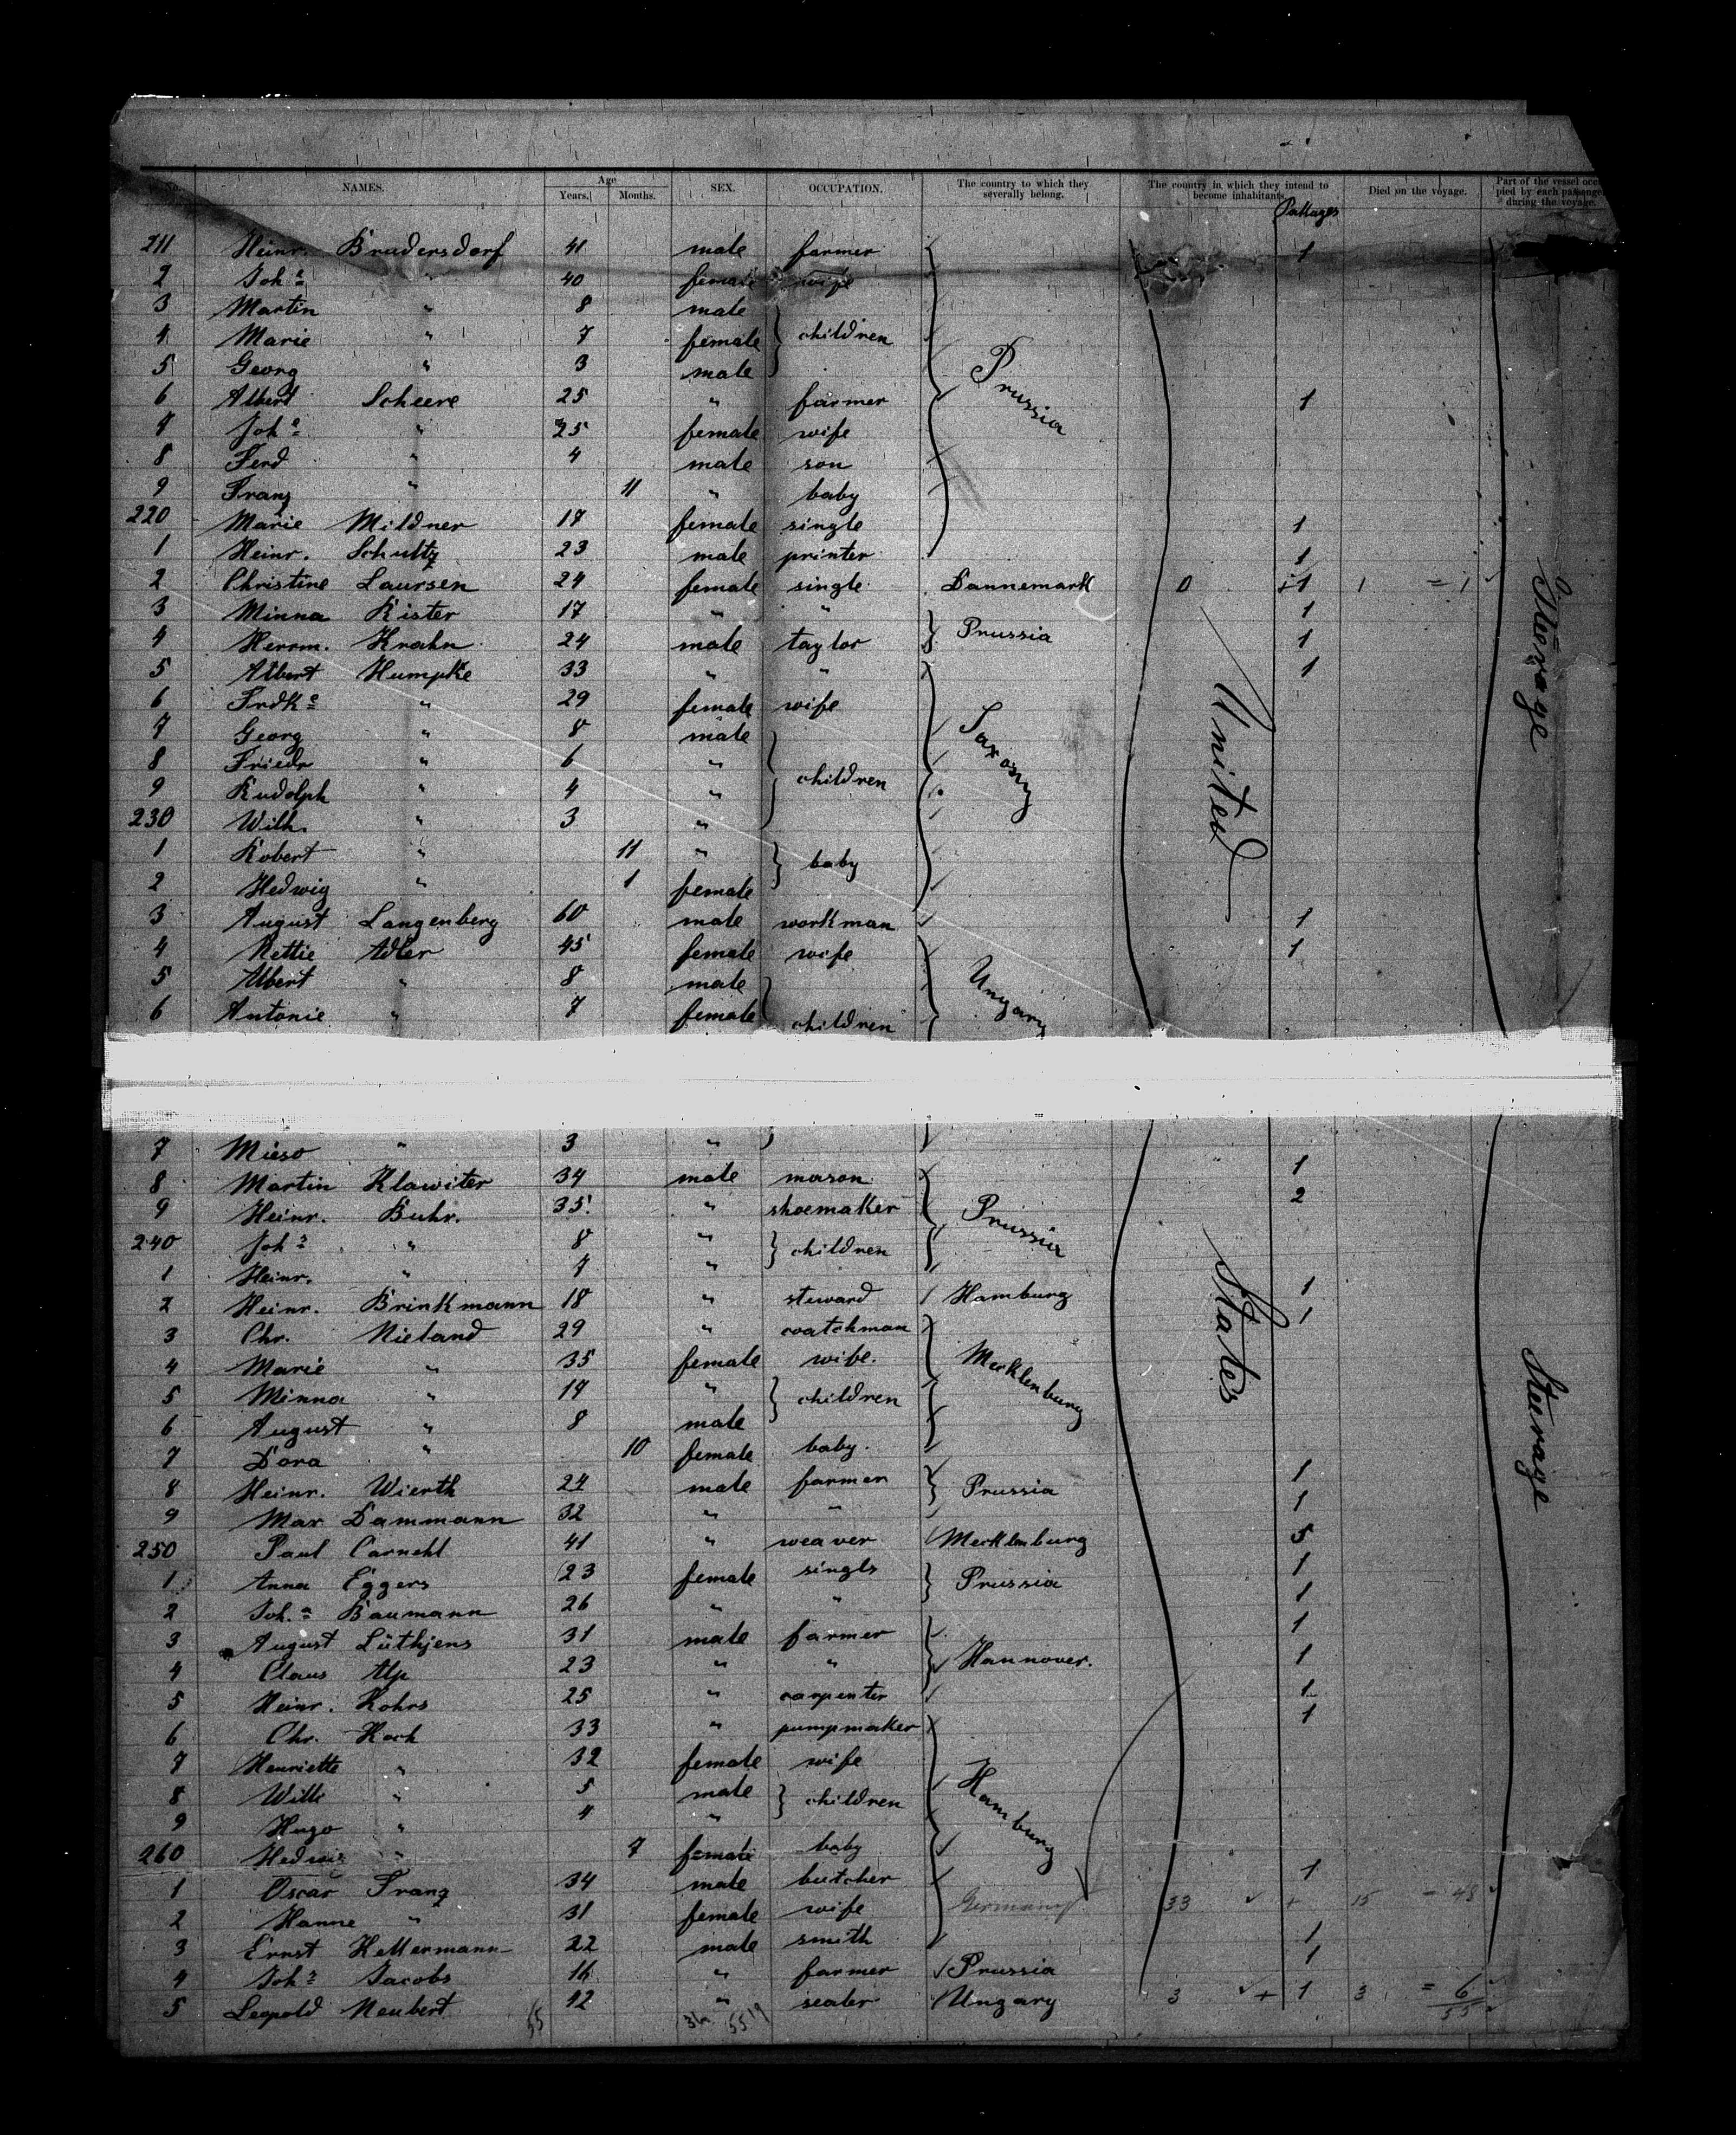 No. NAMES. Age Years. Months. SEX. OCCUPATION. The country to which they severally belong. The country in which they intend to become inhabitants. Died on the voyage. Part of the vessel occupied by each passenger during the voyage.
211 Heinr. Brudersdorf 41 male farmer 1
2 Joh.ª " 40 female wife
3 Martin " 8 male
4 Marie " 7 female children
5 Georg " 3 male Prussia
6 Albert Scheere 25 " farmer 1
7 Joh.ª " 25 female wife
8 Ferd " 4 male son
9 Franz " 11 " baby
220 Marie Mildner 17 female single 1
1 Heinr. Schultz 23 male printer 1
2 Christine Laursen 24 female single Dannemark 0 + 1 1 = 1
3 Minna Rister 17 " " 1
4 Herrm. Krahn 24 male taylor Prussia 1 Steerage
5 Albert Humpke 33 " " 1
6 Frdkª " 29 female wife
7 Georg " 8 male
8 Friedr " 6 " Saxony United
9 Rudolph " 4 " children
230 Wilh. " 3 "
1 Robert " 11 " baby
2 Hedwig " 1 female
3 August Langenberg 60 male workman 1
4 Nettie Adler 45 female wife 1
5 Albert " 8 male Ungary
6 Antonie " 7 female children
7 " 3 "
8 Martin Klawiter 34 male mason 1
9 Heinr. Buhr. 35 " shoemaker Prussia 2
240 Joh.ˢ " 8 " children
1 Heinr. " 7 "
2 Heinr. Brinkmann 18 " steward Hamburg 1
3 Chr. Nieland 29 " watchman 1 States
4 Marie " 35 female wife. Mecklenburg
5 Minna " 19 " children Steerage
6 August " 8 male
7 Dora " 10 female baby.
8 Heinr. Wierth 24 male farmer Prussia 1
9 Max Dammann 32 " " 1
250 Paul Carnehl 41 " weaver Mecklenburg 5
1 Anna Eggers 23 female single Prussia 1
2 Joh.ª Baumann 26 " " 1
3 August Lüthjens 31 male farmer 1
4 Claus Alp 23 " " Hannover. 1
5 Heinr. Kohrs 25 " carpenter 1
6 Chr. Koch 33 " pumpmaker 1
7 Henriette " 32 female wife
8 Willi " 5 male children Hamburg
9 Hugo " 4 "
260 Hedwig " 7 female baby
1 Oscar Franz 34 male butcher 1
2 Hanne " 31 female wife Germany 33 + 15 = 48
3 Ernst Kellermann 22 male smith 1
4 Joh.ˢ Jacobs 16 " farmer Prussia 1
5 Leopold Neubert 42 " Ungary 3 + 1 3 = 6
55 55